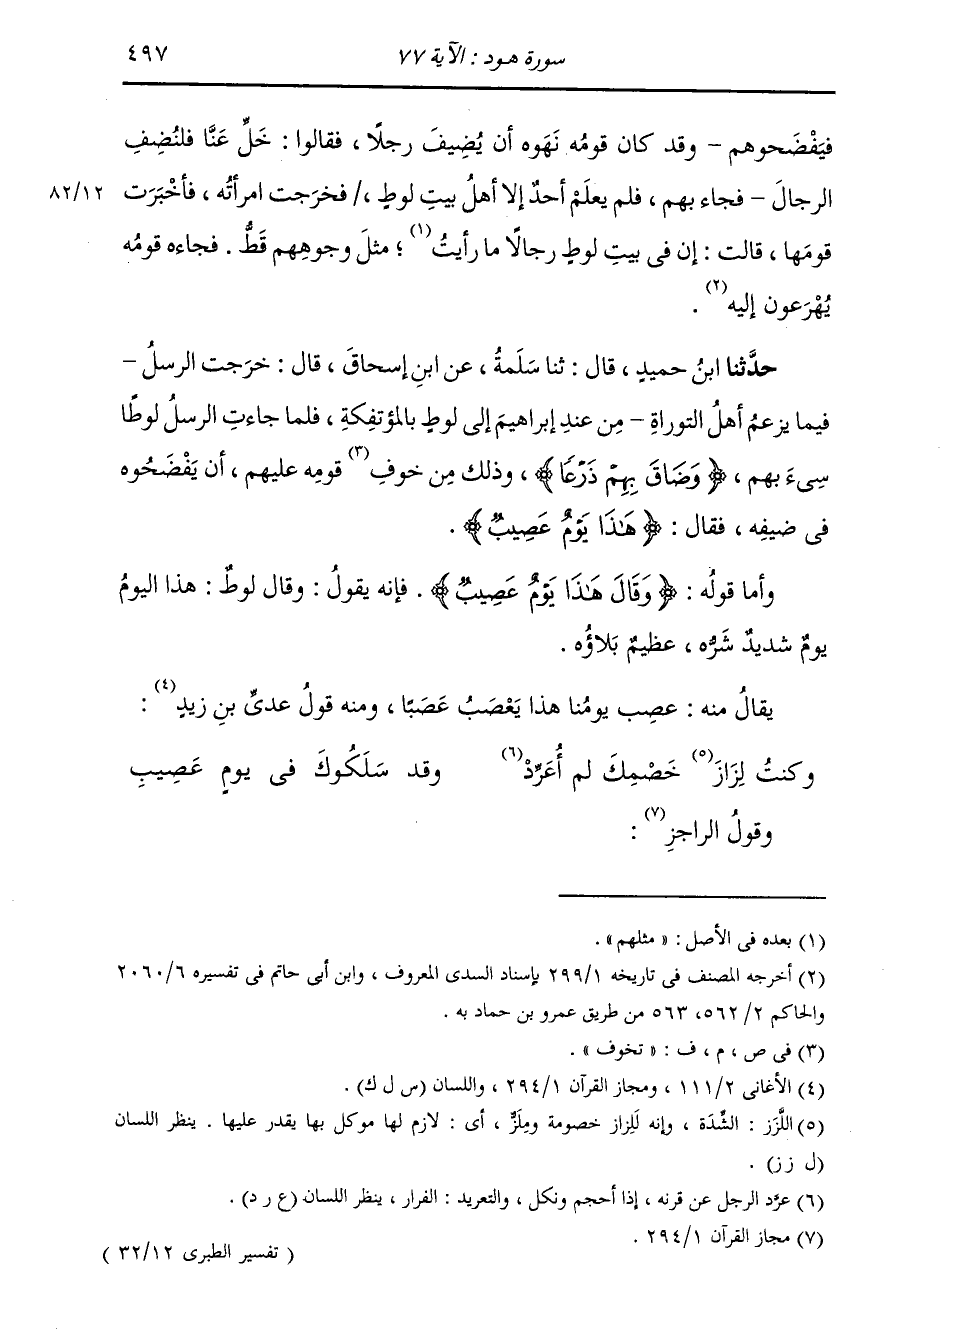 سورة هود : الآية ٧٧ ٤٩٧
فيَفْضَحوهم - وقد كان قومُه نَهَوه أن يُضِيفَ رجلًا ، فقالوا : خَلِّ عَنَّا فلنُضِفِ
الرجالَ - فجاء بهم ، فلم يعلَمْ أحدٌ إلا أهلُ بيتِ لوطٍ ،/ فخرَجت امرأتُه ، فأخْبَرَت ٨٢/١٢
قومَها ، قالت : إن فى بيتِ لوطٍ رجالًا ما رأيتُ(١) ؛ مثلَ وجوهِهم قَطُّ . فجاءه قومُه
يُهْرَعون إليه(٢) .
حدَّثنا ابنُ حميدٍ ، قال : ثنا سَلَمةُ ، عن ابنِ إسحاقَ ، قال : خرَجت الرسلُ -
فيما يزعمُ أهلُ التوراةِ - مِن عندِ إبراهيمَ إلى لوطٍ بالمؤتفِكةِ ، فلما جاءتِ الرسلُ لوطًا
سِىءَ بهم ، ﴿ وَضَاقَ بِهِمْ ذَرْعًا ﴾ ، وذلك مِن خوفِ(٣) قومِه عليهم ، أن يَفْضَحُوه
فى ضيفِه ، فقال : ﴿ هَٰذَا يَوْمٌ عَصِيبٌ ﴾ .
وأما قولُه : ﴿ وَقَالَ هَٰذَا يَوْمٌ عَصِيبٌ ﴾ . فإنه يقولُ : وقال لوطٌ : هذا اليومُ
يومٌ شديدٌ شَرُّه ، عظيمٌ بَلاؤُه .
يقالُ منه : عصِب يومُنا هذا يَعْصَبُ عَصَبًا ، ومنه قولُ عدىِّ بنِ زيدٍ(٤) :
وكنتُ لِزَازَ(٥) خَصْمِكَ لم أُعَرِّدْ(٦) وقد سَلَكُوكَ فى يومٍ عَصِيبِ
وقولُ الراجزِ(٧) :
(١) بعده فى الأصل : « مثلهم » .
(٢) أخرجه المصنف فى تاريخه ٢٩٩/١ بإسناد السدى المعروف ، وابن أبى حاتم فى تفسيره ٢٠٦٠/٦
والحاكم ٢/ ٥٦٢، ٥٦٣ من طريق عمرو بن حماد به .
(٣) فى ص ، م ، ف : « تخوف » .
(٤) الأغانى ١١١/٢ ، ومجاز القرآن ٢٩٤/١ ، واللسان (س ل ك) .
(٥) اللَّزَز : الشِّدَة ، وإنه لَلِزاز خصومة ومِلَزٌّ ، أى : لازم لها موكل بها يقدر عليها . ينظر اللسان
(ل ز ز) .
(٦) عرَّد الرجل عن قرنه ، إذا أحجم ونكل ، والتعريد : الفرار ، ينظر اللسان (ع ر د) .
(٧) مجاز القرآن ٢٩٤/١ .
( تفسير الطبرى ٣٢/١٢ )